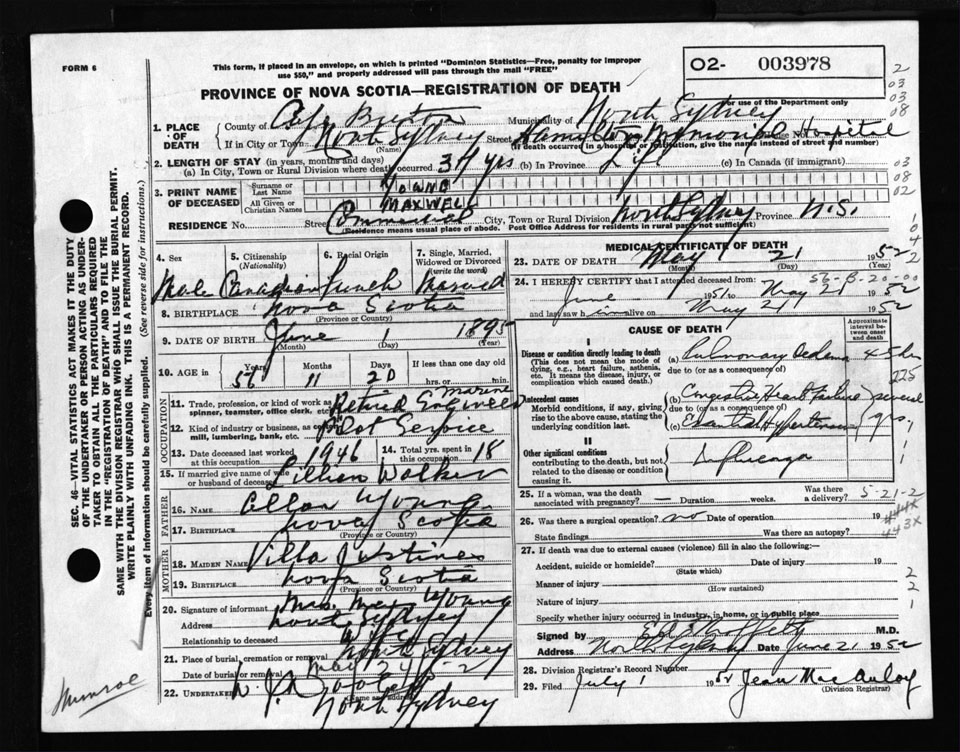 FORM 6
This form, if placed in an envelope, on which is printed "Dominion Statistics—Free, penalty for improper
use $50," and properly addressed will pass through the mail "FREE"
O2- 003978
For use of the Department only
PROVINCE OF NOVA SCOTIA—REGISTRATION OF DEATH
1. PLACE OF DEATH
County of Cape Breton Municipality of North Sydney
If in City or Town North Sydney Street Hamilton Memorial Hospital
(Name) (If death occurred in a hospital or institution, give the name instead of street and number)
2. LENGTH OF STAY (in years, months and days)
(a) In City, Town or Rural Division where death occurred 34 yrs (b) In Province Life (c) In Canada (if immigrant)
3. PRINT NAME OF DECEASED
Surname or Last Name YOUNG
All Given or Christian Names MAXWELL
RESIDENCE No. Street Commercial City, Town or Rural Division North Sydney Province N.S.
(Residence means usual place of abode. Post Office Address for residents in rural parts not sufficient)
4. Sex Male
5. Citizenship (Nationality) Canadian
6. Racial Origin French
7. Single, Married, Widowed or Divorced (write the word) Married
8. BIRTHPLACE Nova Scotia
(Province or Country)
9. DATE OF BIRTH June 1 1895
(Month) (Day) (Year)
10. AGE in Years 56 Months 11 Days 20 If less than one day
hrs. or min.
OCCUPATION
11. Trade, profession or kind of work as spinner, teamster, office clerk, etc. Retired Marine Engineer
12. Kind of industry or business, as mill, lumbering, bank, etc. Pilot Service
13. Date deceased last worked at this occupation 1946 14. Total yrs. spent in this occupation 18
15. If married give name of wife or husband of deceased Lillian Walker
FATHER
16. Name Allan Young
17. Birthplace Nova Scotia
(Province or Country)
MOTHER
18. MAIDEN NAME Villa Justines
19. Birthplace Nova Scotia
(Province or Country)
20. Signature of informant Mrs. Max Young
Address North Sydney
Relationship to deceased Wife
21. Place of burial, cremation or removal North Sydney
Date of burial or removal May 24
22. UNDERTAKER
Name and address
North Sydney
MEDICAL CERTIFICATE OF DEATH
23. DATE OF DEATH May 21 1952
(Month) (Day) (Year)
56-B-20-00
24. I HEREBY CERTIFY that I attended deceased from
June 1951 to May 21 1952
and last saw him alive on May 21 1952
CAUSE OF DEATH
Approximate interval between onset and death
I
Disease or condition directly leading to death (a) Pulmonary Oedema
(This does not mean the mode of dying, e.g., heart failure, asthenia, etc. It means the disease, injury, or complication which caused death.)
due to (or as a consequence of)
Antecedent causes (b) Congestive Heart Failure several
Morbid conditions, if any, giving rise to the above cause, stating the underlying condition last.
due to (or as a consequence of)
(c) Essential Hypertension yrs.
II
Other significant conditions Influenza
contributing to the death, but not related to the disease or condition causing it.
25. If a woman, was the death associated with pregnancy? — Duration weeks. Was there a delivery?
5-21-2
26. Was there a surgical operation? no Date of operation 19
State findings Was there an autopsy?
444X
443X
27. If death was due to external causes (violence) fill in also the following:—
Accident, suicide or homicide? Date of injury 19
(State which)
Manner of injury
(How sustained)
Nature of injury
Specify whether injury occurred in industry, in home, or in public place
Signed by M.D.
Address North Sydney Date June 21 1952
28. Division Registrar's Record Number
29. Filed July 1 1952 Jean MacAuley
(Division Registrar)
SEC. 46—VITAL STATISTICS ACT MAKES IT THE DUTY
OF THE UNDERTAKER OR PERSON ACTING AS UNDER-
TAKER TO OBTAIN ALL THE PARTICULARS REQUIRED
IN THE "REGISTRATION OF DEATH" AND TO FILE THE
SAME WITH THE DIVISION REGISTRAR WHO SHALL ISSUE THE BURIAL PERMIT.
WRITE PLAINLY WITH UNFADING INK. THIS IS A PERMANENT RECORD.
Every item of information should be carefully supplied. (See reverse side for instructions.)
Munroe